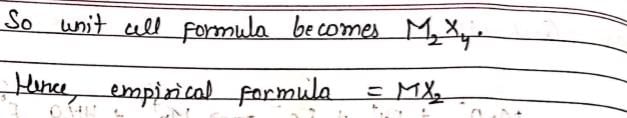 So unit cell formula becomes M₂X₄.
Hence, empirical formula = MX₂